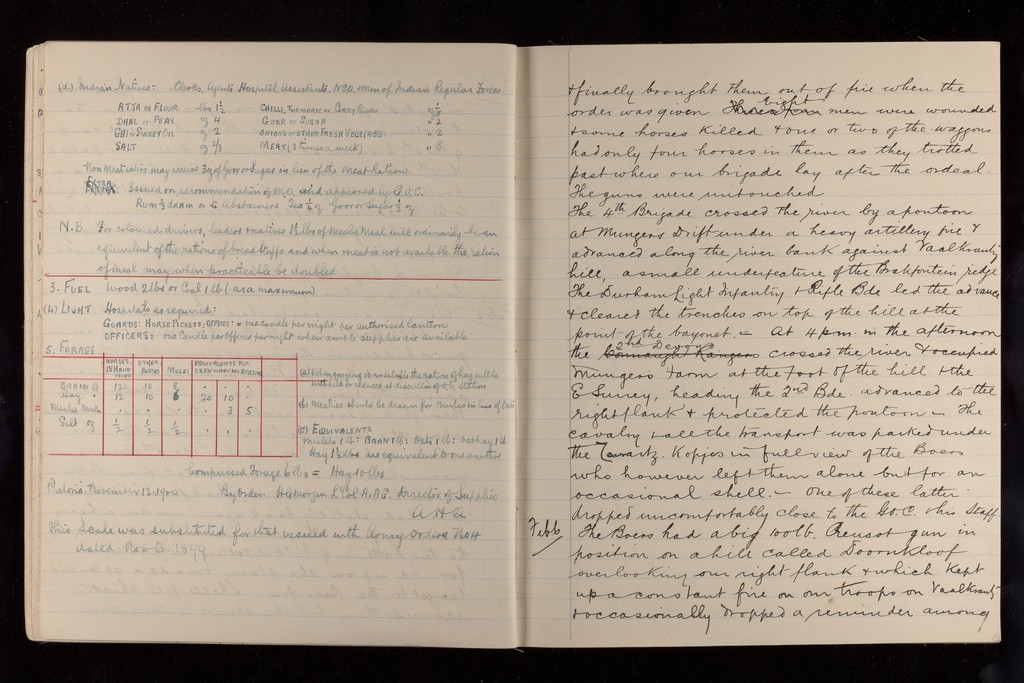 (d.) Indian Natives: Clerks, Agents Hospital Assistants, NCO & men of Indian Regular Forces.
ATTA or FLOUR lbs 1½ CHILLI, TURMERIC or CURRY POWDER
DHAL or PEAS oz 4 GOOR or SUGAR 2
GHI or SWEET OIL oz 2 ONIONS or OTHER FRESH VEGETABLE " 2
SALT oz ⅔ MEAT (3 times a week) " 8
Non Meat eaters may receive 3 oz of Goor or Sugar in lieu of the meat ration.
EXTRA: Issued on recommendation of M.O. and approved by G.O.C.
RUM ½ dram or to Abstainers Tea ¼ oz Goor or Sugar ½ oz
N.B For coloured drivers, leaders & natives 1½ lbs of Mealie Meal will ordinarily be an
equivalent of the rations of breadstuffs and when meat is not available the ration
of meal may when practicable be doubled
3. FUEL Wood 2 lbs or Coal 1 lb (as a maximum)
(4) LIGHT. Hospitals as required:
GUARDS: HORSE PICKETS: OFFICES: = one candle per night per authorised lantern
OFFICERS = one candle per officer per night when ample supplies are available
5. FORAGE
HORSES 15 HAND OTHER HORSES MULES EQUIVALENTS FOR
OXEN
GRAIN lb 12 10 8 . . .
Hay " 12 10 6 20 10 .
Mealie . . . . 3 5
Salt oz ½ ½ ½ . . .
(a) When grazing is available the ration of hay will be
withheld or reduced at discretion of O.C. Station
(b) Mealies should be drawn for Mules in lieu of Oats
(c) EQUIVALENTS
Mealies 1 lb: BRAN 1 lb: Oats 1 lb: Oathay 1 lb
Hay 1½ lbs are equivalent to one another
Compressed Forage 6 lbs = Hay 10 lbs.
Pretoria November 12. 1900 By Order. H G Morgan Lt Col A.A.G. Director of Supplies
A H Q
This scale was substituted for that issued with Army Orders No 4
dated Nov 6. 1899
& finally brought them out of fire when the
order was given Eight men were wounded
& some horses killed & one or two of the waggons
had only four horses in them as they trotted
past where our brigade lay after the ordeal.
The guns were untouched
The 4th Brigade crossed the river by a pontoon
at Mungers Drift under a heavy artillery fire &
advanced along the river bank against Vaalkrantz
hill, a small underfeature of the Brakfontein ridge
The Durham Light Infantry & Rifle Bde led the advance
& cleared the trenches on top of the hill at the
point of the bayonet. = At 4 pm. in the afternoon
2nd Devons
the Connaught Rangers crossed the river & occupied
Mungers Farm at the foot of the hill & the
E Surrey, heading the 2nd Bde advanced to the
right flank & protected the pontoon – The
cavalry & all the transport was parked under
the Zwartz. Kopjes in full view of the Boers
who however left them alone but for an
occasional shell. – One of these latter
dropped uncomfortably close to the G.O.C. & his Staff.
Feb 6 The Boers had a big 100 lb. Creusot gun in
position on a hill called Doornkloof
overlooking our right flank & which kept
up a constant fire on our troops on Vaalkrantz
& occasionally dropped a reminder among